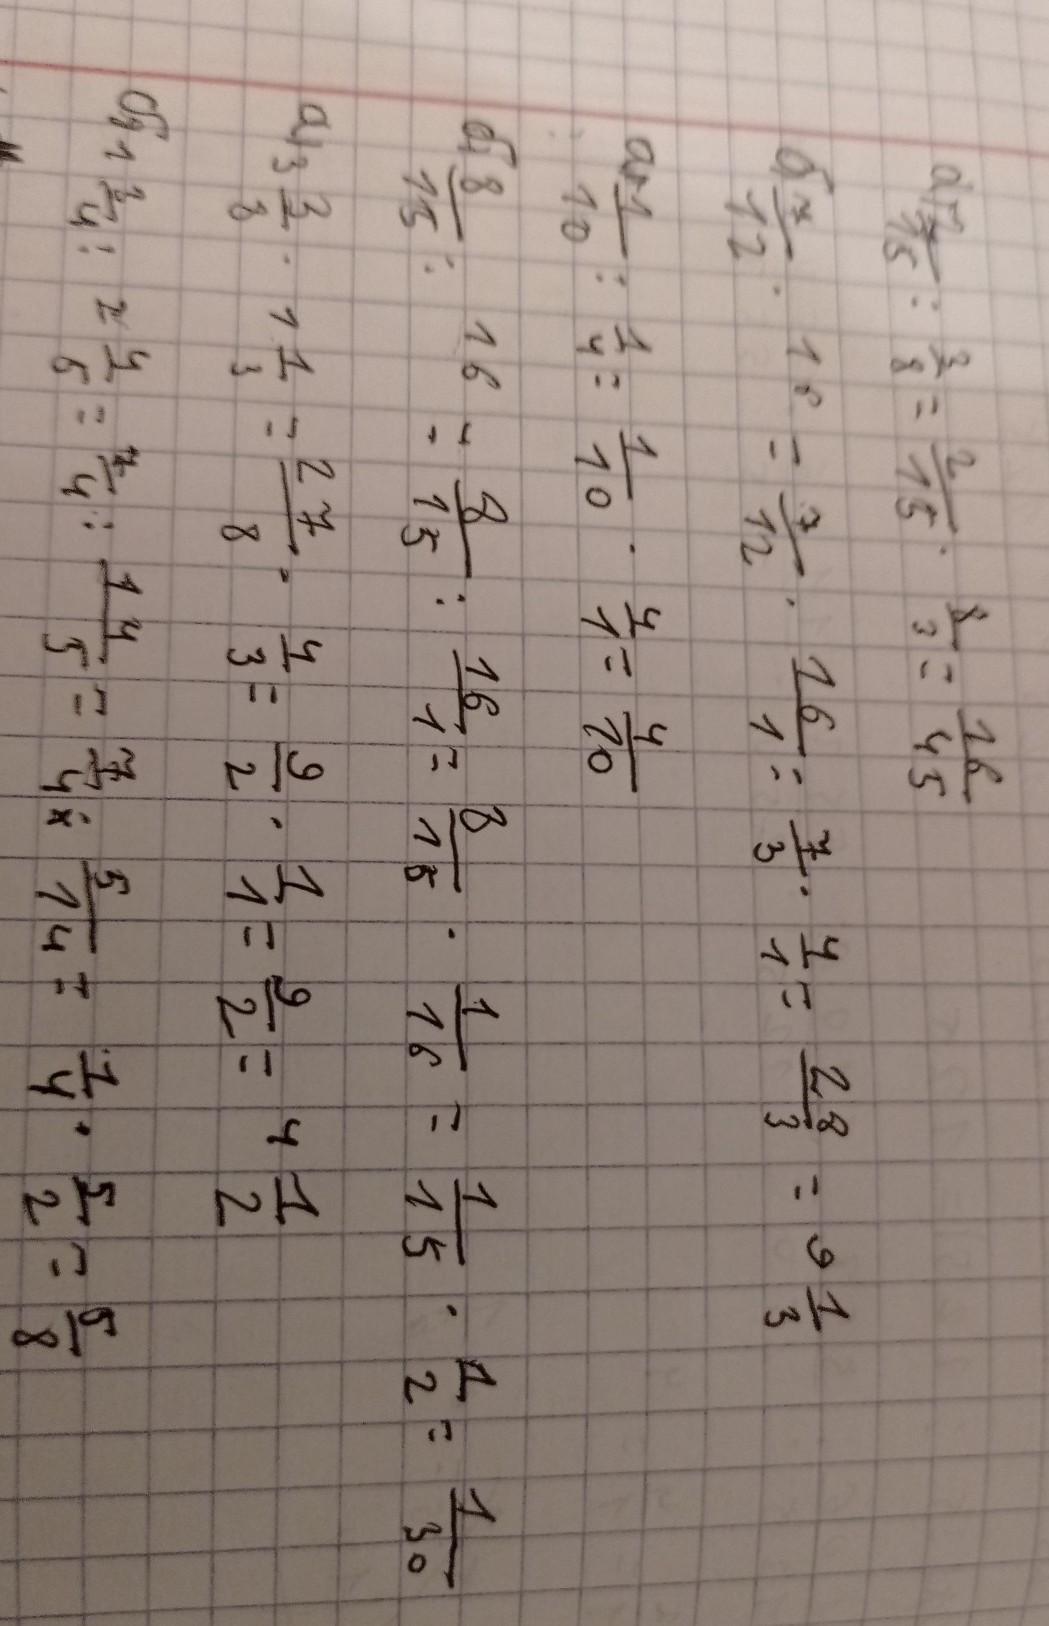 а) 2/15 : 3/8 = 2/15 · 8/3 = 16/45
б) 7/12 · 16 = 7/12 · 16/1 = 7/3 · 4/1 = 28/3 = 9 1/3
а) 1/10 : 1/4 = 1/10 · 4/1 = 4/10
б) 8/15 : 16 = 8/15 : 16/1 = 8/15 · 1/16 = 1/15 · 1/2 = 1/30
а) 3 3/8 · 1 1/3 = 27/8 · 4/3 = 9/2 · 1/1 = 9/2 = 4 1/2
б) 1 3/4 : 2 4/5 = 7/4 : 14/5 = 7/4 · 5/14 = 1/4 · 5/2 = 5/8